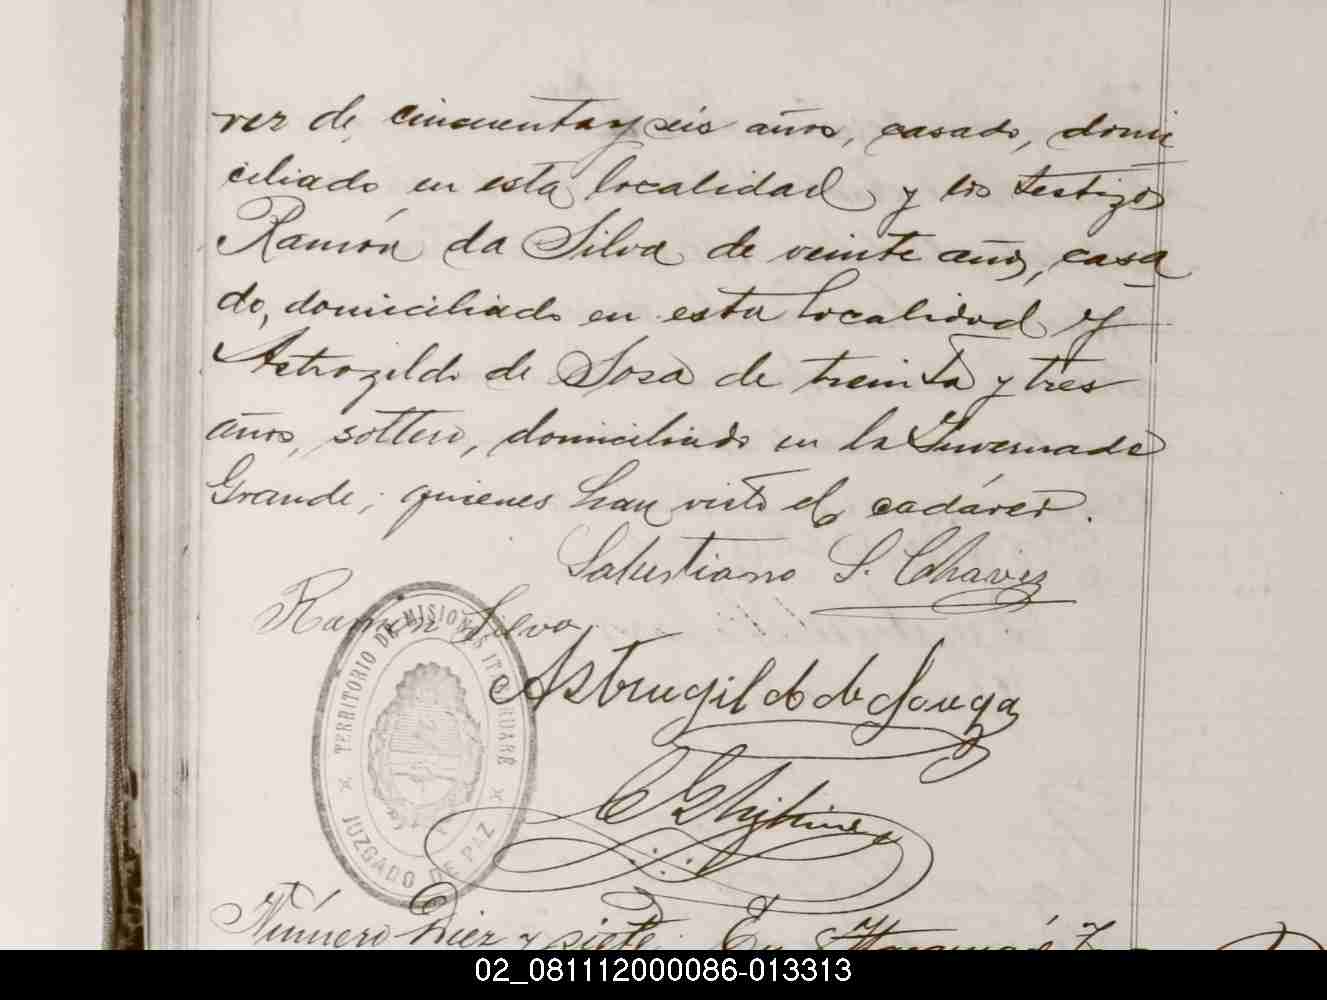 ver de cincuenta y seis años, casado, domi
ciliado en esta localidad y los testigos
Ramón da Silva de veinte años, casa
do, domiciliado en esta localidad y
Astrogildo de Sosa de treinta y tres
años, soltero, domiciliado en la Invernada
Grande; quienes han visto el cadáver.
Salustiano S. Chavez
Ramon Silva
Astrugildo de Souza
TERRITORIO DE MISIONES
JUZGADO DE PAZ
Número Diez y siete. En
02_081112000086-013313